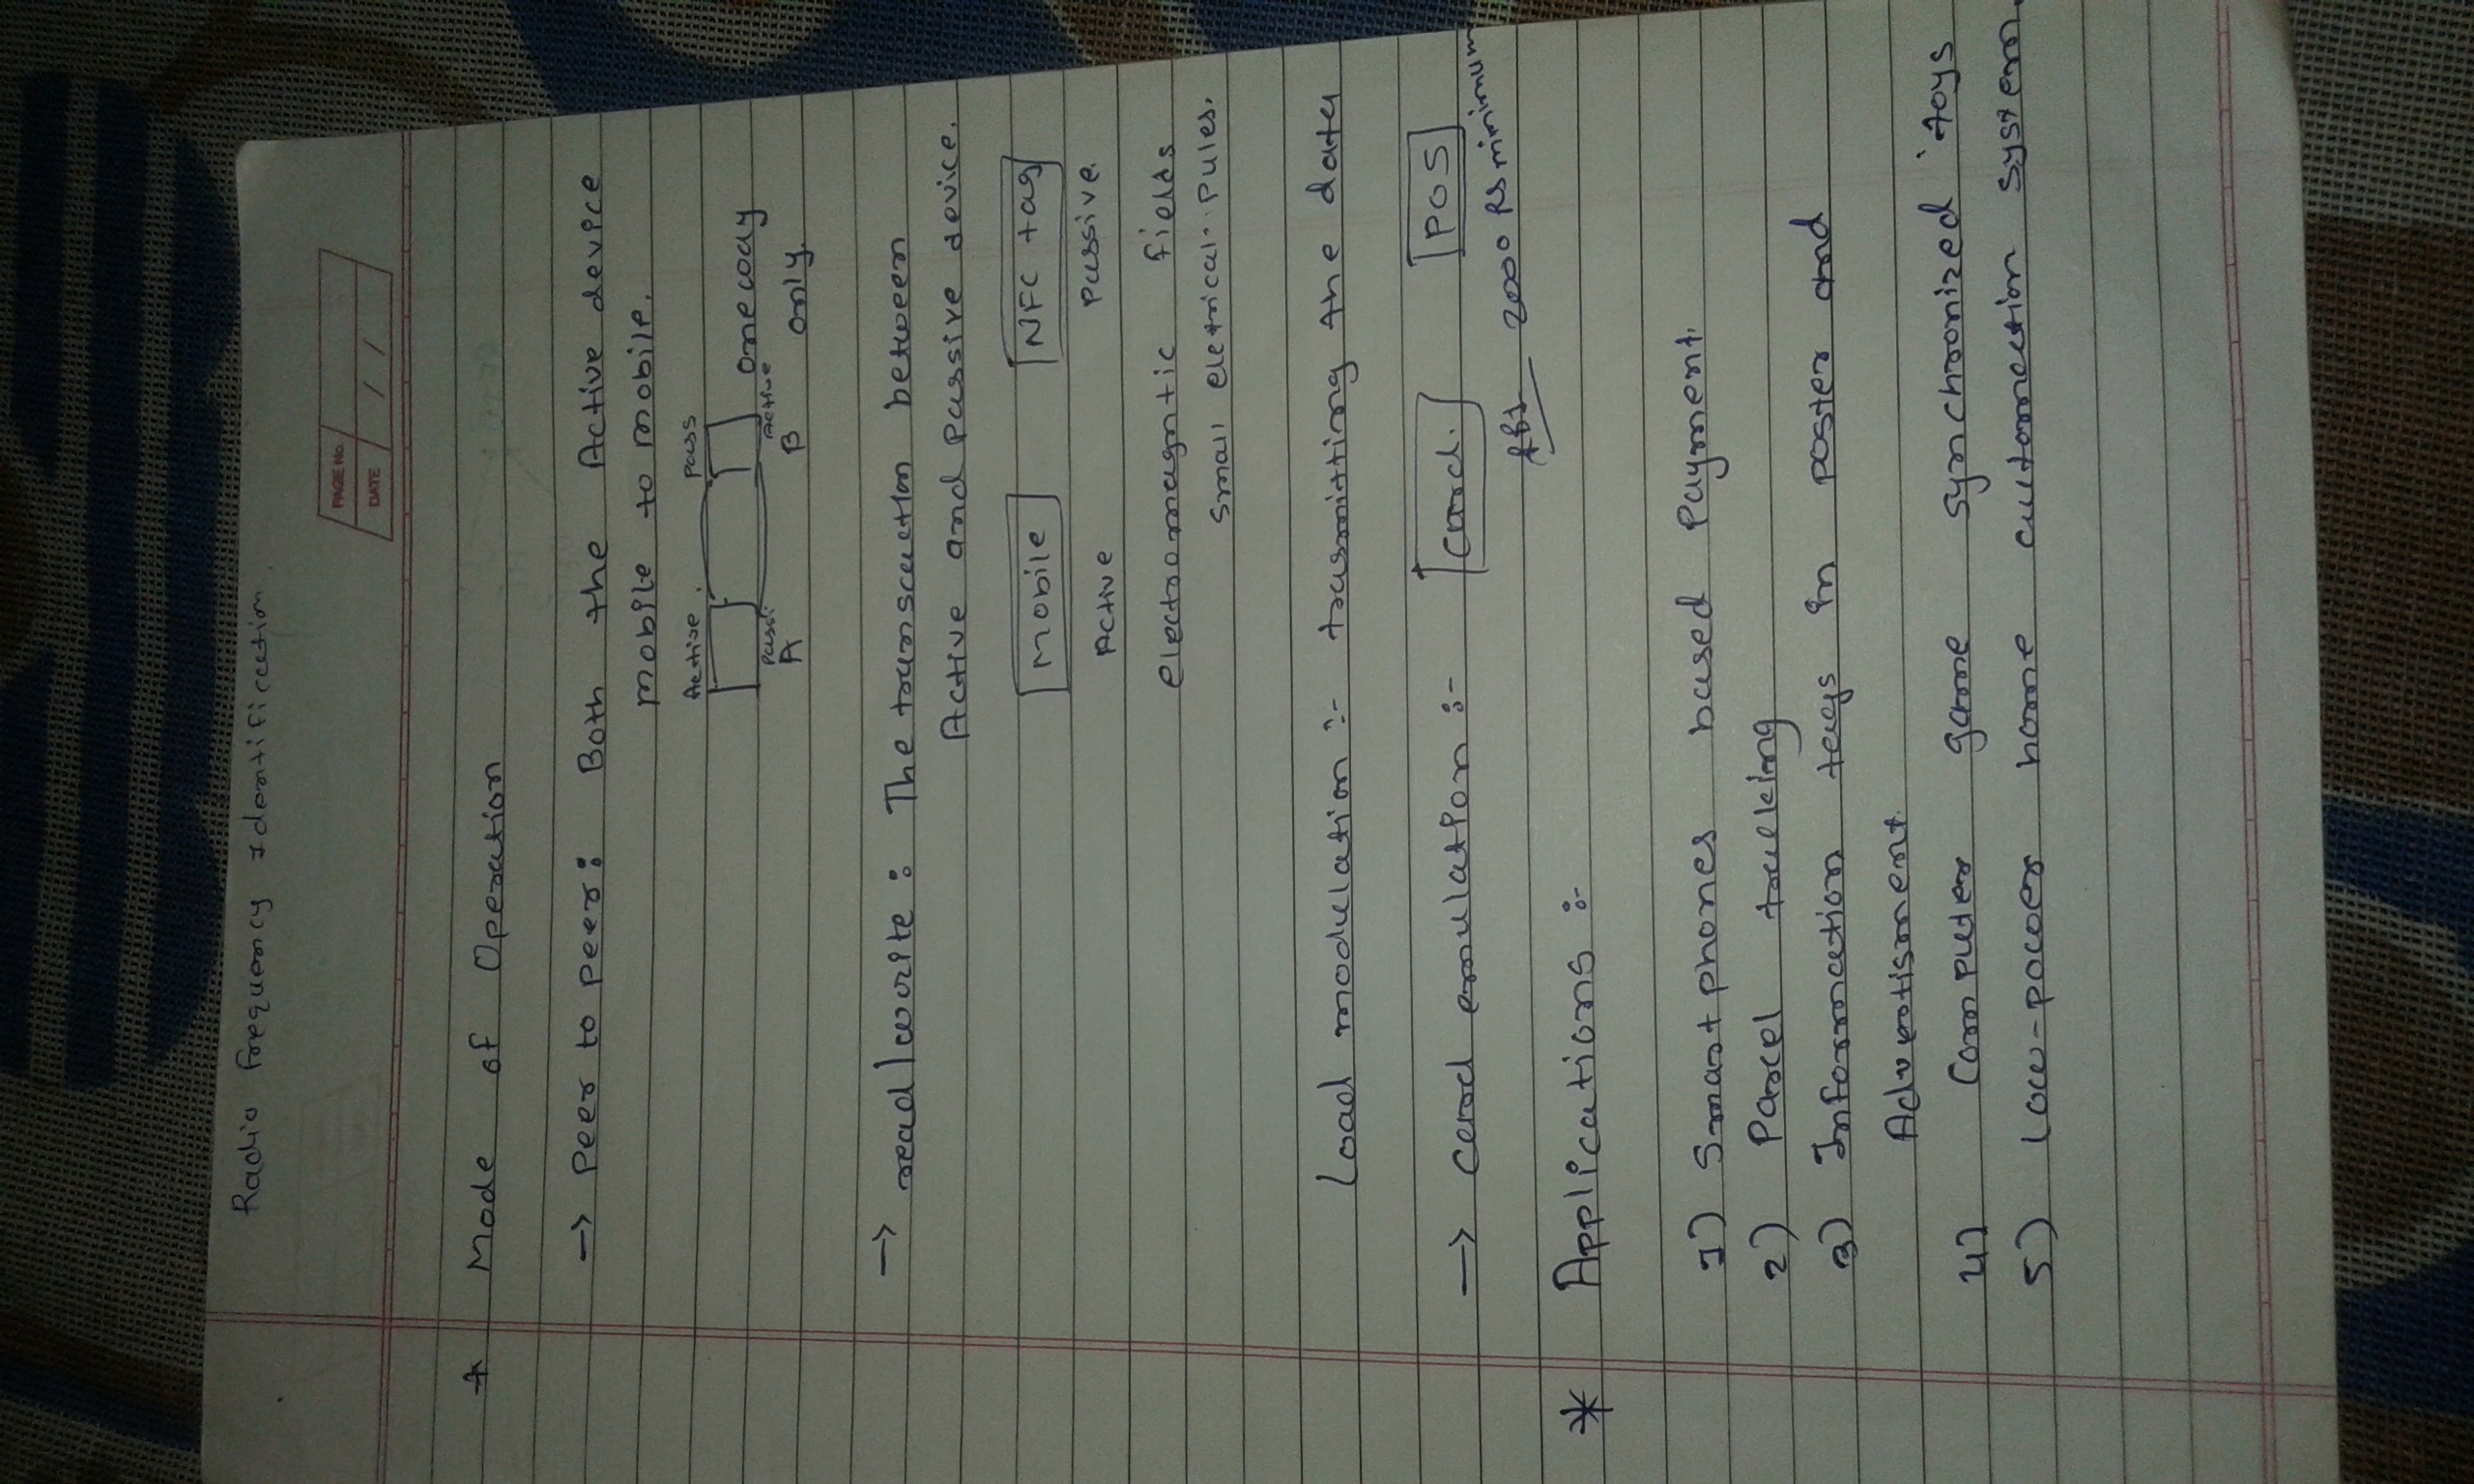 Radio Frequency Identification
PAGE NO.
DATE / /
* Mode of Operation
→ Peer to peer: Both the Active device
mobile to mobile.
Active. pass
oneway
pass. Active
A B only
→ read/write: The transcation between
Active and passive device.
Mobile NFC tag
Active passive.
electromagntic fields
small eletrical pules.
Load modulation :- trasmitting the data
→ Card emulation :- Card. POS
2000 Rs minimum
* Applications :-
1) Smart phones based Payment.
2) Parcel tracking
3) Information tags in poster and
Advertisment.
4) Computer game synchronized toys
5) Low-power home automection system.